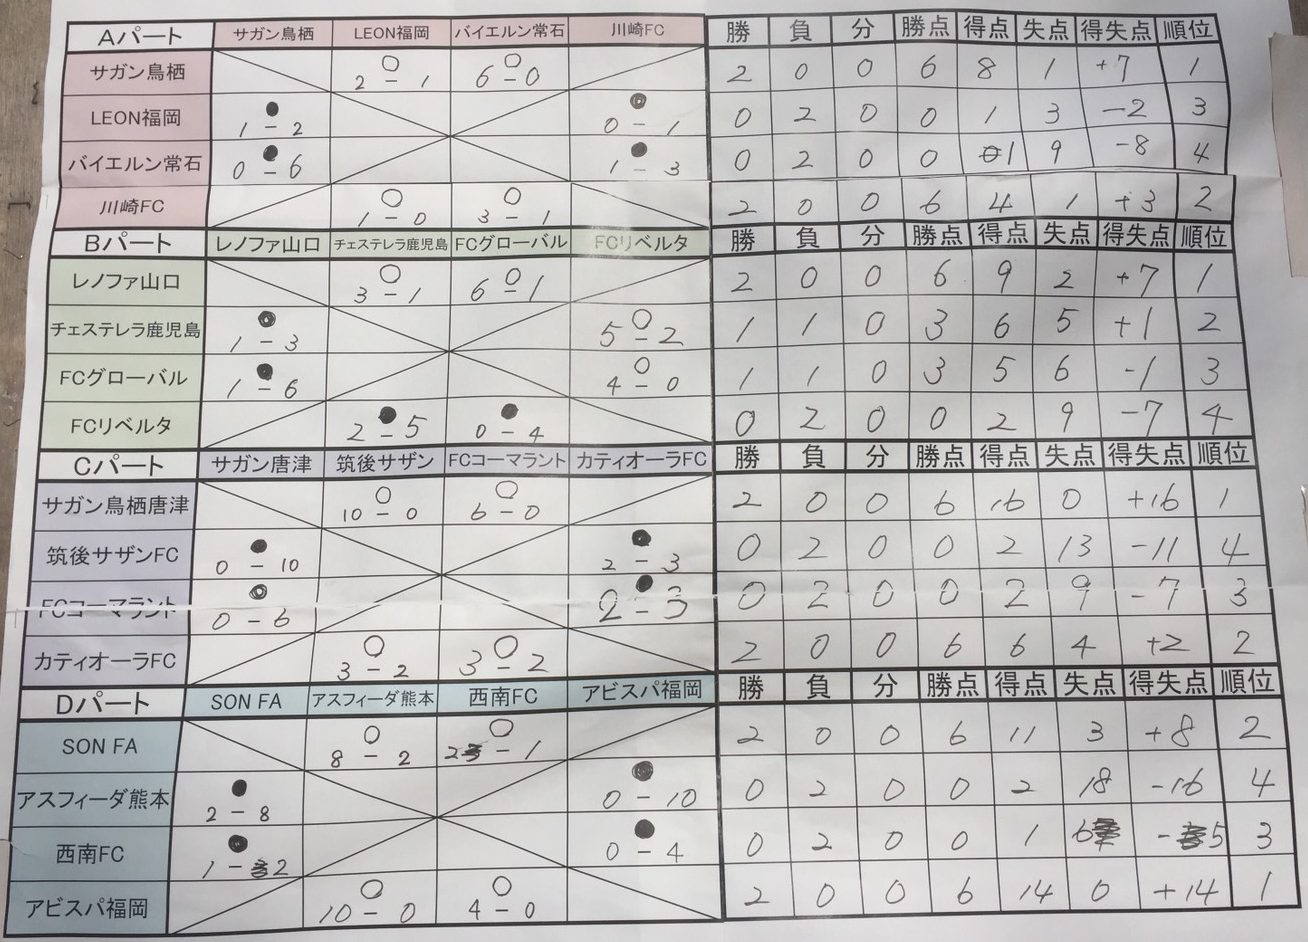 Aパート サガン鳥栖 LEON福岡 バイエルン常石 川崎FC 勝 負 分 勝点 得点 失点 得失点 順位
サガン鳥栖 ○ 2-1 ○ 6-0 2 0 0 6 8 1 +7 1
LEON福岡 ● 1-2 ● 0-1 0 2 0 0 1 3 -2 3
バイエルン常石 ● 0-6 ● 1-3 0 2 0 0 1 9 -8 4
川崎FC ○ 1-0 ○ 3-1 2 0 0 6 4 1 +3 2
Bパート レノファ山口 チェステレラ鹿児島 FCグローバル FCリベルタ 勝 負 分 勝点 得点 失点 得失点 順位
レノファ山口 ○ 3-1 ○ 6-1 2 0 0 6 9 2 +7 1
チェステレラ鹿児島 ● 1-3 ○ 5-2 1 1 0 3 6 5 +1 2
FCグローバル ● 1-6 ○ 4-0 1 1 0 3 5 6 -1 3
FCリベルタ ● 2-5 ● 0-4 0 2 0 0 2 9 -7 4
Cパート サガン唐津 筑後サザン FCコーマラント カティオーラFC 勝 負 分 勝点 得点 失点 得失点 順位
サガン鳥栖唐津 ○ 10-0 ○ 6-0 2 0 0 6 16 0 +16 1
筑後サザンFC ● 0-10 ● 2-3 0 2 0 0 2 13 -11 4
FCコーマラント ● 0-6 ● 2-3 0 2 0 0 2 9 -7 3
カティオーラFC ○ 3-2 ○ 3-2 2 0 0 6 6 4 +2 2
Dパート SON FA アスフィーダ熊本 西南FC アビスパ福岡 勝 負 分 勝点 得点 失点 得失点 順位
SON FA ○ 8-2 ○ 2-1 2 0 0 6 11 3 +8 2
アスフィーダ熊本 ● 2-8 ● 0-10 0 2 0 0 2 18 -16 4
西南FC ● 1-2 ● 0-4 0 2 0 0 1 6 -5 3
アビスパ福岡 ○ 10-0 ○ 4-0 2 0 0 6 14 0 +14 1